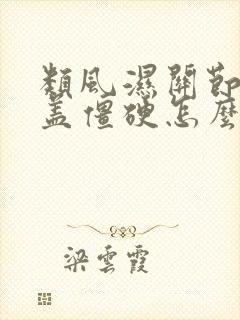 類風濕關節
蓋僵硬怎麼
梁雲霞